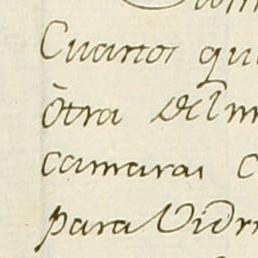 Cuartos qu
òtra del m
camaras c
para Vidr